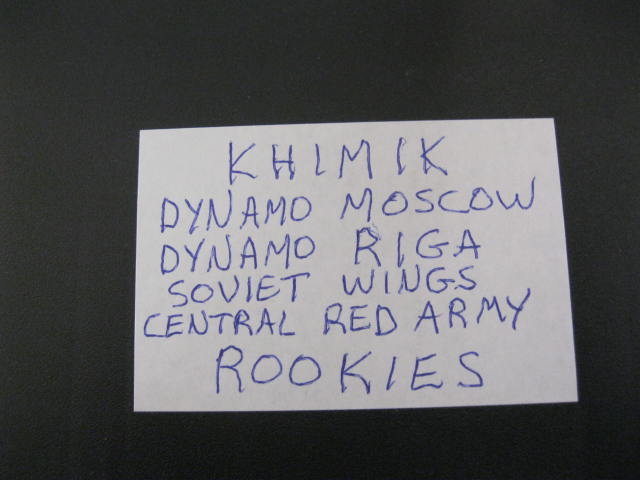 KHIMIK
DYNAMO MOSCOW
DYNAMO RIGA
SOVIET WINGS
CENTRAL RED ARMY
ROOKIES